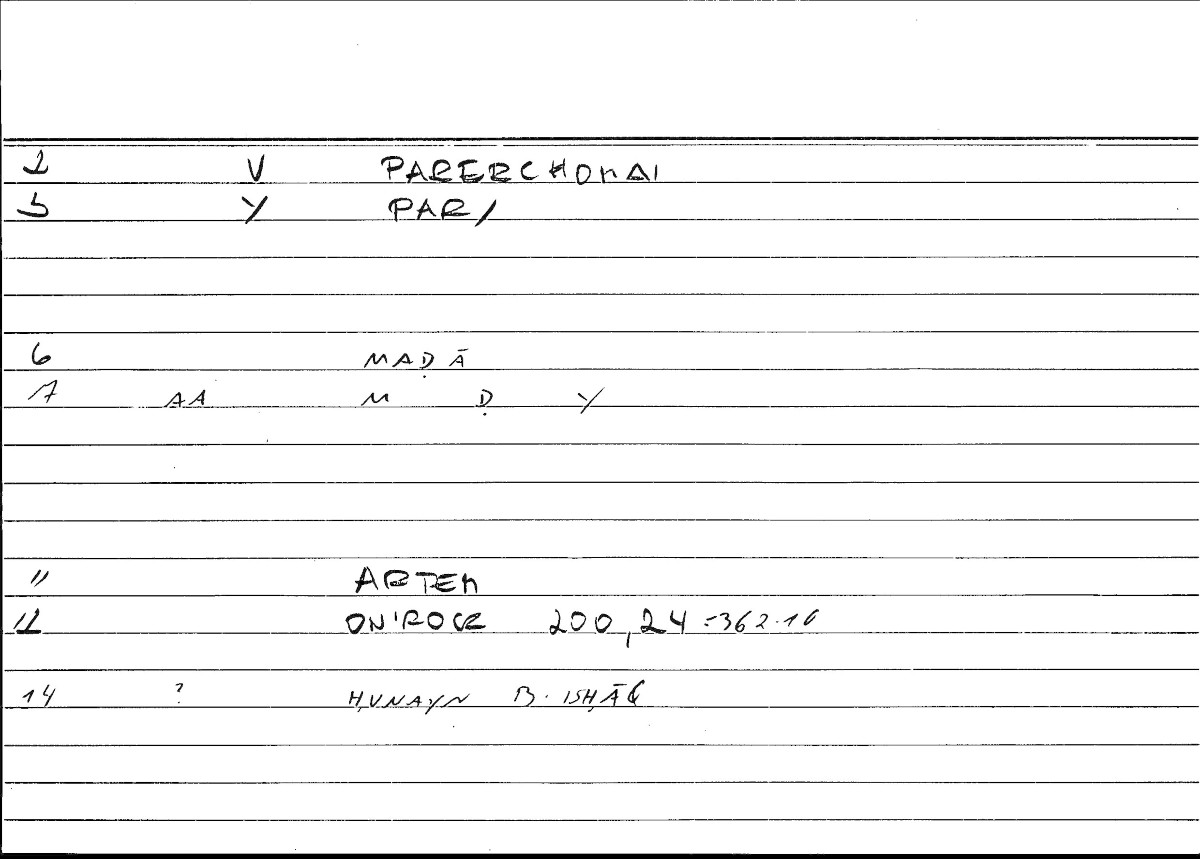 2 V PARERCHOMAI
3 Y PAR/
6 MAḌĀ
7 AA M Ḍ Y
11 ARTEM
12 ONIROCR 200,24=362.16
14 ? ḤUNAYN B. ISḤĀQ